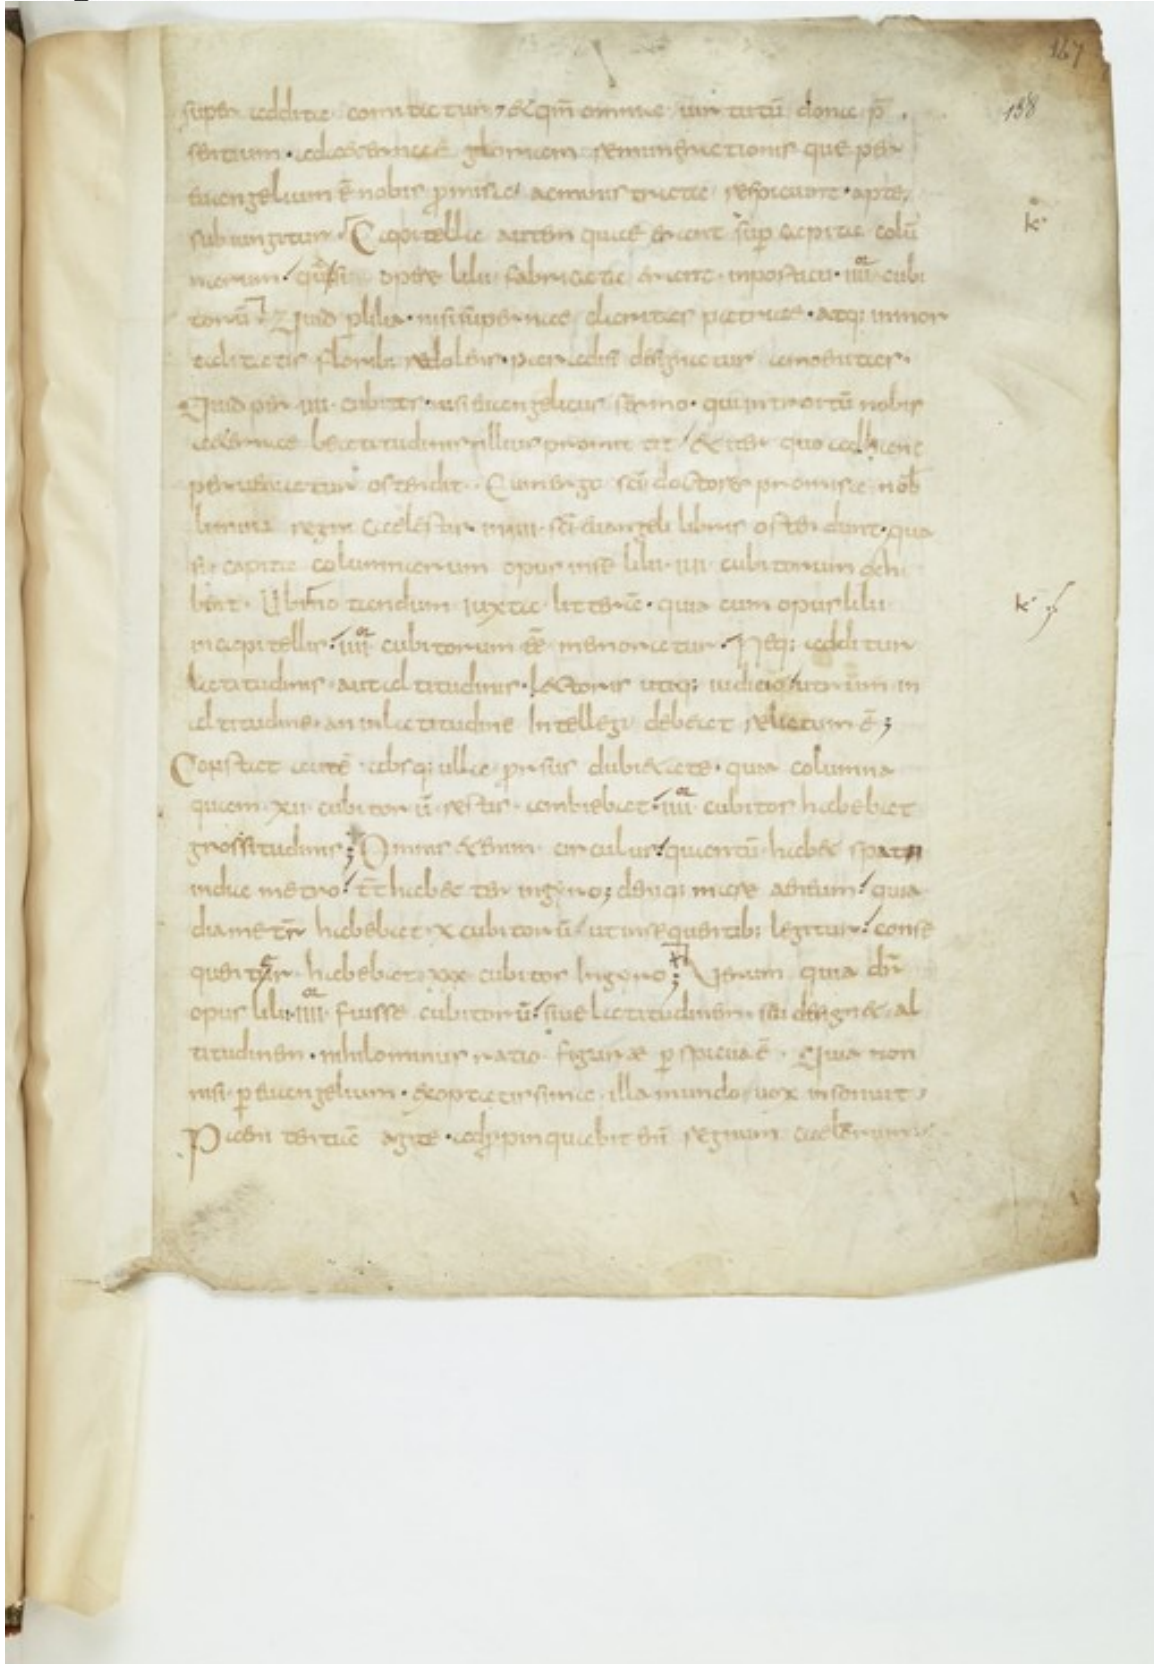 167
super addita comitatur, & qm̄ omnia uirtutū dona p̄
158
sentium ad aeternae gloriam remunerationis que per
euangelium ē nobis promissa administrata respiciunt apte
subiungitur Capitella autem quae erant sup̄ capita colū
k
narum quasi opere lilii fabricata erant in porticu iiii or cubi
torū Quid p lilia nisi supernae claritas patriae atq; inmor
talitatis florib; redolens paradisi designatur amoenitas
Quid per iiii cubitos nisi euangelicus sermo qui introitū nobis
aeternae beatitudinis illius promittit & iter quo ad hanc
perueniatur ostendit Cum ergo sc̄i doctores promissa nob̄
limina regni caelestis in iiii sc̄i euangelii libris ostendunt qua
si capita columnarum opus in se lilii iiii cubitorum exhi
bent Ubi notandum iuxta litterā quia cum opus lilii
k
in capitellis iiii or cubitorum ēē memoratur Neq; additur
latitudinis aut altitudinis lectoris utiq; iudicio utrum in
altitudine an in latitudine Intellegi debeat relictum ē;
Constat autē absq; ulla prorsus dubietate quia columna
quam xii cubitorū restis ambiebat iiii or cubitos habebat
grossitudinis; Omnis etenim circulus quantū habet spatii
in diametro tt̄ habet ter in gyro; deniq; mare aeneum quia
diametr̄ habebat x cubitorū ut in sequentib; legitur conse
quenter habebat xxx cubitos In gyro; Uerum quia dr̄
opus lilii iiii or fuisse cubitorū siue latitudinem seu designet al
titudinem nihilominus ratio figurae p spicua ē Quia non
nisi p euangelium exoptatissima illa mundo uox insonuit
Paenitentiā agite adpropinquabit enī regnum caelorum